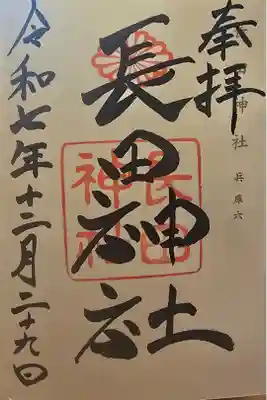 奉拝
田神社 兵庫六
長田神社
長田
神社
令和七年十二月二十九日